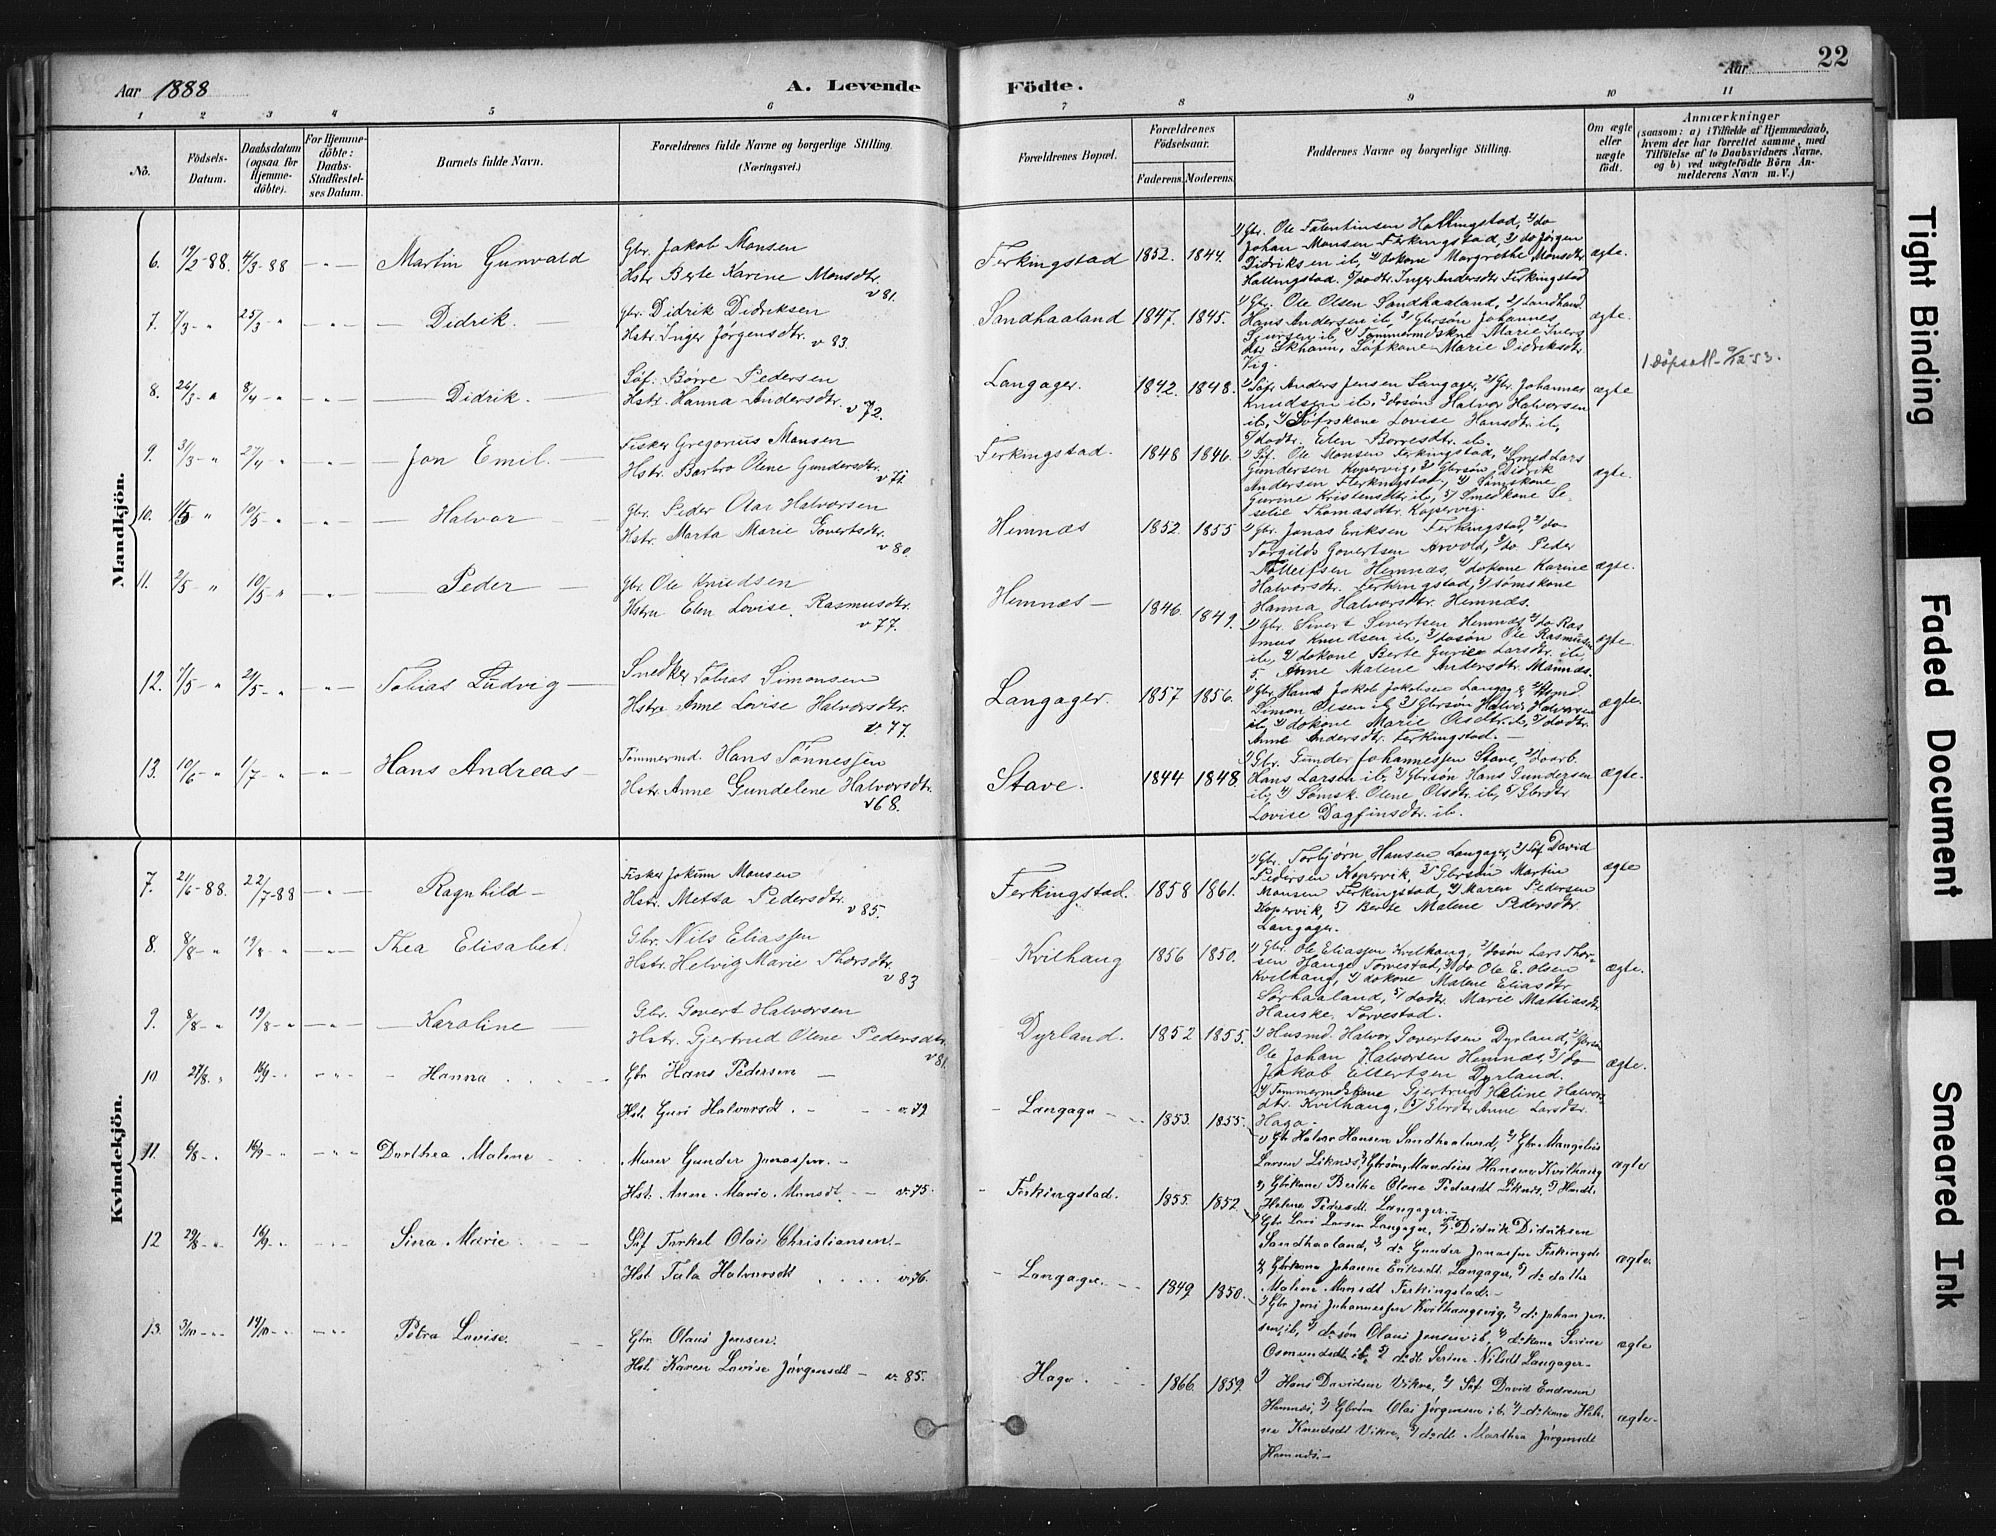 Aar 1888
A. Levende
Födte.
Aar
22
1 2 3 4 5 6 7 8 9 10 11
No.
Födsels-
Datum.
Daabsdatum
(ogsaa for
Hjemme-
döbte).
For Hjemme-
döbte:
Daabs-
Stadfæstel-
ses Datum.
Barnets fulde Navn.
Forældrenes fulde Navne og borgerlige Stilling.
(Næringsvei.)
Forældrenes Bopæl.
Forældrenes
Födselsaar.
Faderens. Moderens.
Faddernes Navne og borgerlige Stilling.
Om ægte
eller
uægte
født.
Anmærkninger
(saasom: a) i Tilfælde af Hjemmedaab,
hvem der har forrettet samme, med
Tilföielse af to Daabsvidners Navne,
og b) ved uægtefödte Börn An-
melderens Navn m. V.)
Mandkjön.
6. 19/2-88. 4/3-88 Martin Gunvald
Gbr. Jakob Monsen
Hstr. Berte Karine Monsdtr.
v 81.
Ferkingstad 1852. 1844.
1/ Gbr. Ole Valentinsen Hallingstad, 2/ do
Johan Monsen Ferkingstad, 3/ do Jørgen
Didriksen ib, 4/ dokone Margrethe Monsdtr
Hallingstad. 5/ dodtr. Inger Andersdtr Ferkingstad
ægte.
7. 7/3 - " 25/3 - " Didrik.
Gbr. Didrik Didriksen
Hstr. Inger Jørgensdtr.
v 83.
Sandhaaland 1847. 1845.
1/ Gbr. Ole Olsen Sandhaaland, 2/ Landhand
Hans Andersen ib, 3/ Gbrsøn Johannes
Sjursen ib, 4/ Tømmermdskne Marie Ivers
dtr. Skhavn, Søfkone Marie Didriksdtr.
Vig.
ægte.
8. 26/3 - " 8/4 - " Didrik.
Søf. Børre Pedersen
Hstr. Hanna Andersdtr.
v 72.
Langager. 1842. 1848.
1/ Søf. Anders Jensen Langager, 2/ Gbr. Johannes
Knudsen ib, 3/ dosøn Halvor Halvorsen
ib, 4/ Søfrskone Lovise Hansdtr. ib,
5/ dodtr. Elen Børresdtr. ib.
ægte
1 døpsatt. 9/2-53.
9. 31/3 - " 27/4 - " Jon Emil.
Fisker Gregorius Monsen
Hstr. Barbro Olene Gundersdtr.
v 71.
Ferkingstad. 1848 1846.
1/ Søf. Ole Monsen Ferkingstad, 2/ Smed Lars
Gundersen Kopervig, 3/ Gbrsøn Didrik
Andersen Ferkingstad, 4/ Sømskone
Gurine Kristensdtr. ib, 5/ Smedkone Se-
selie Thomasdtr. Kopervig.
ægte.
10. 1/5 " 10/5 " Halvor
Gbr. Peder Olai Halvorsen
Hstr. Marta Marie Govertsdtr.
v 80.
Hemnæs 1852. 1855
1/ Gbr. Jonas Eriksen Ferkingstad, 2/ do
Torgilds Govertsen Arvold, 3/ do Peder
Tolleifsen Hemnæs, 4/ dokone Karine
Halvorsdtr. Ferkingstad, 5/ Sømskone
Hanna Halvorsdtr. Hemnæs.
ægte.
11. 2/5 " 10/5 - " Peder
Gbr. Ole Knudsen
Hstru Elen Lovise Rasmusdtr.
v 77.
Hemnæs 1846. 1849.
1/ Gbr. Sivert Sivertsen Hemnæs, 2/ do Ras
mus Knudsen ib, 3/ dosøn Ole Rasmusen
ib, 4/ dokone Berte Gurie Larsdtr. ib,
5. Anne Malene Andersdtr. Mannæs.
ægte.
12. 7/5 - " 21/5 - " Tobias Ludvig
Snedker Tobias Simonsen
Hstru Anne Lovise Halvorsdtr.
v. 77.
Langager. 1857 1856.
1/ Gbr. Hans Jakob Jakobsen Langager, 2/ Husmd.
Simon Olsen ib, 3/ Gbrsøn Halvor Halvorsen
ib, 4/ dokone Marie Olsdtr. ib, 5/ dodtr.
Anne Andersdtr. Ferkingstad.
ægte.
13. 10/6 - " 1/7 - " Hans Andreas
Tømmermd. Hans Tønnessen
Hstr. Anne Gundelene Halvorsdtr.
v 68.
Stave. 1844 1848.
1/ Gbr. Gunder Johannessen Stave, 2/ Daarb.
Hans Larsen ib, 3/ Gbrsøn Hans Gundersen
ib, 4/ Sømsk. Olene Olsdtr. ib, 5/ Gbrdtr
Lovise Dagfinsdtr. ib.
ægte.
Kvindekjön.
7. 21/6-88. 22/7-88 Ragnhild
Fisker Jokum Monsen
Hstr. Metta Pedersdtr.
v 85.
Ferkingstad. 1858 1861.
1/ Gbr. Torbjørn Hansen Langager, 2/ Søf. David
Pedersen Kopervik, 3/ Gbrsøn Martin
Monsen Ferkingstad, 4/ Maren Pedersen
Kopervik, 5/ Berte Malene Pedersdtr.
Langager.
ægte
8. 8/8 - " 19/8 " Thea Elisabet.
Gbr. Nils Eliassen
Hstr. Helvig Marie Thorsdtr.
v 83
Kvilhaug 1856 1850.
1/ Gbr. Ole Eliassen Kvilhaug, 2/ dosøn Lars Thor-
sen Hauge Torvestad, 3/ do Ole E. Olsen
Kvilhaug, 4/ dokone Malene Eliasdtr
Sørhaaland, 5/ dodtr. Marie Mattiasdtr.
Hauske, Torvestad.
ægte.
9. 8/8 - " 19/8 - " Karoline
Gbr. Govert Halvorsen
Hstr. Gjertrud Olene Pedersdtr.
v 81.
Dyrland. 1852 1855.
1/ Husmd. Halvor Govertsen Dyrland, 2/ Gbrsøn
Ole Johan Halvorsen Hemnæs, 3/ do
Jakob Ellertsen Dyrland.
4/ Tømmermdskone Gjertrud Heline Halvors-
dtr. Kvilhaug, 5/ Gbrdtr Anne Larsdtr.
Haga
ægte.
10 27/8. " 16/9 - . Hanna
Gbr Hans Pedersen
Hst. Guri Halvorsdt. v. 79
Langager 1853. 1855.
1/ Gb. Halvor Hansen Sandhaaland, 2/ Gbr. Mangelus
Larsen Liknes, 3/ Gbrsøn Maudius Hansen Kvilhaug
4/ Gbrkone Berthe Olene Pedersdt Liknes, 5/ Husdt.
Helene Pedersdt. Langager.
ægte
11. 6/8 - . 16/9 - . Dorthea Malene
Murer Gunder Jonassen.
Hst. Anne Marie Monsdt. v. 75.
Ferkingstad. 1855. 1852
1/ Gbr Lars Larsen Langager, 2/ Didrik Didriksen
Sandhaaland, 3/ do Gunder Jonassen Ferkingst.
4/ Gbrkone Johanne Eriksdt. Langager, 5/ do datter
Malene Monsdt Ferkingstad.
ægte.
12 29/8 . 16/9 . Sina Marie
Søf Torkel Olai Christiansen
Hst Tala Halvorsdt v. 76.
Langager. 1849 1850.
1/ Gbr Jens Johannessen Kvilhaugsvig, 2/ do Johan Jen-
sen, ib, 3/ do søn Olaus Jensen ib, 4/ do kone Serine
Osmundsdt ib, 5/ do dt. Serine Nilsdt Langager.
ægte
13 3/10 14/10 Petra Lovise.
Gbr. Olaus Jensen.
Hst. Karen Lovise Jørgensdt v. 85.
Haga 1866. 1859.
1/ Hans Davidsen Vikre, 2/ Søf David Endresen
Hemnæs, 3/ Gbrsøn Olai Jørgensen ib, 4/ do kone Hele-
ne Knudsdt Vikre, 5/ do dt. Marthea Jørgensdt
Hemnæs.
ægte
Tight Binding
Faded Document
Smeared Ink